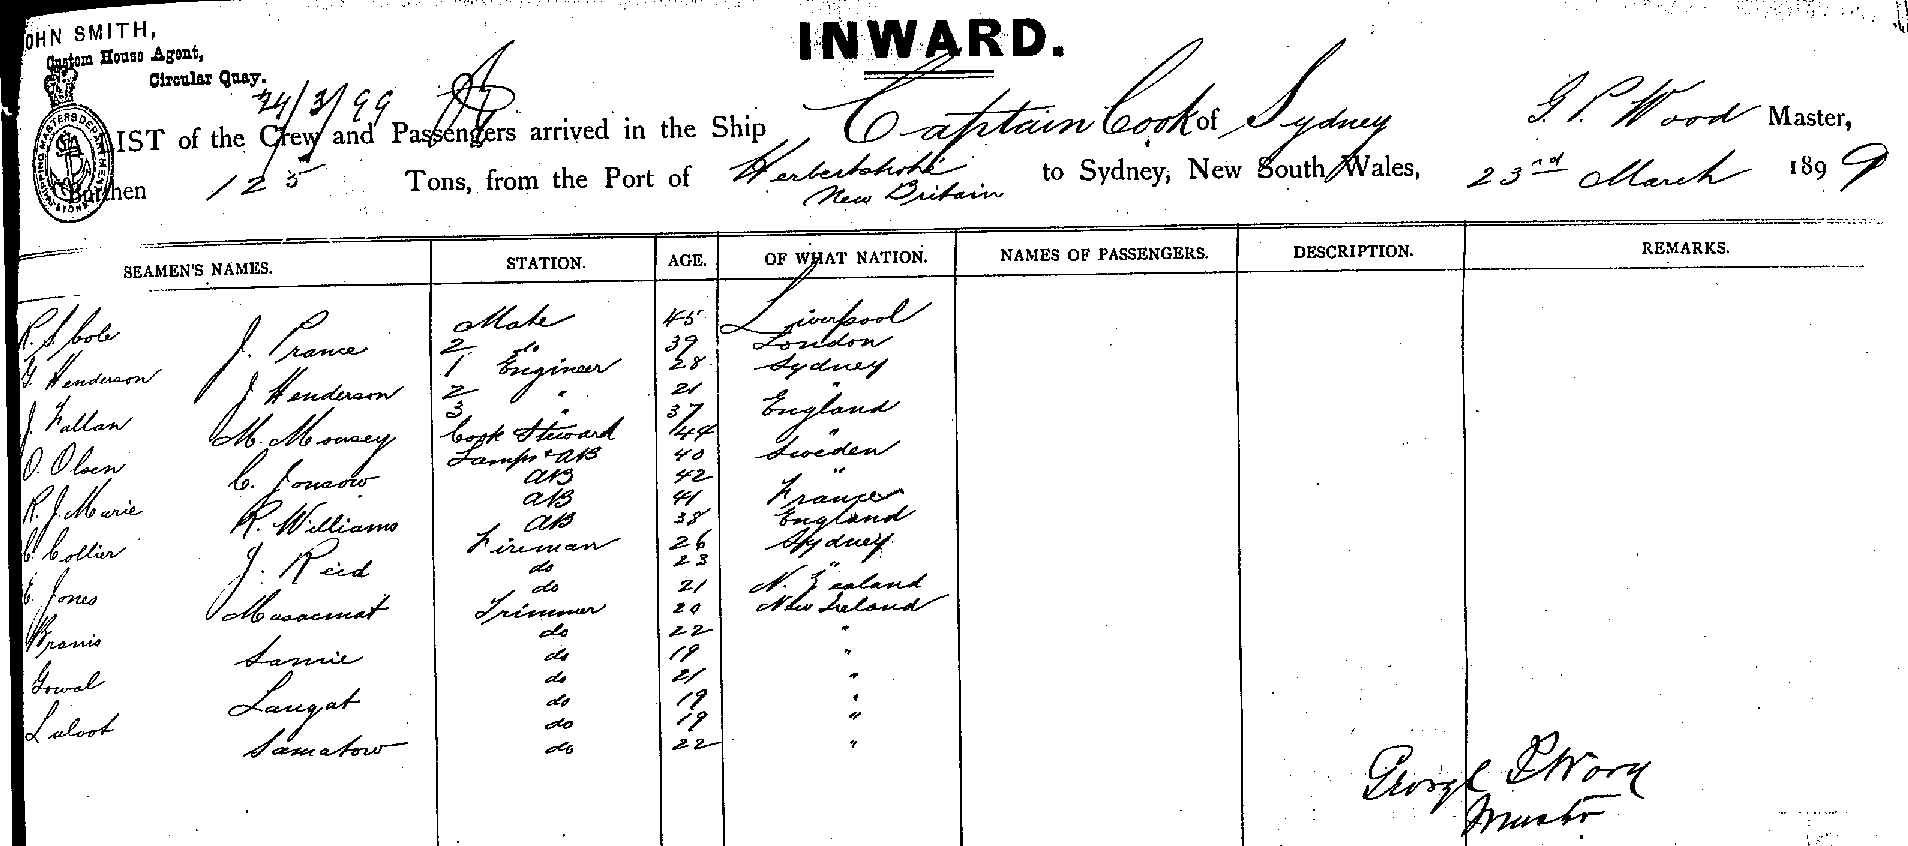 JOHN SMITH,
Custom House Agent,
Circular Quay.
INWARD.
24/3/99
LIST of the Crew and Passengers arrived in the Ship Captain Cook of Sydney G. P. Wood Master,
Burthen 125 Tons, from the Port of Herbertshohe New Britain to Sydney, New South Wales, 23rd March 1899
SEAMEN'S NAMES. STATION. AGE. OF WHAT NATION. NAMES OF PASSENGERS. DESCRIPTION. REMARKS.
R. S. Cole Mate 45 Liverpool
J. Prance 2 do 39 London
G. Henderson 1 Engineer 28 Sydney
J Henderson 2 " 21 "
J. Fallan 3 " 37 England
M. Mousey Cook Steward 44 "
O. Olsen Lamps + AB 40 Sweden
C. Jonsow AB 42 "
R. J. Marie AB 41 France
R. Williams AB 38 England
C. Collier Fireman 26 Sydney
J. Reid do 23 "
E. Jones do 21 N. Zealand
Masacmat Trimmer 20 New Ireland
Branis do 22 "
Samie do 19 "
Gowal do 21 "
Laugat do 19 "
Laloot do 19 "
Samatow do 22 "
George P Wood
Master